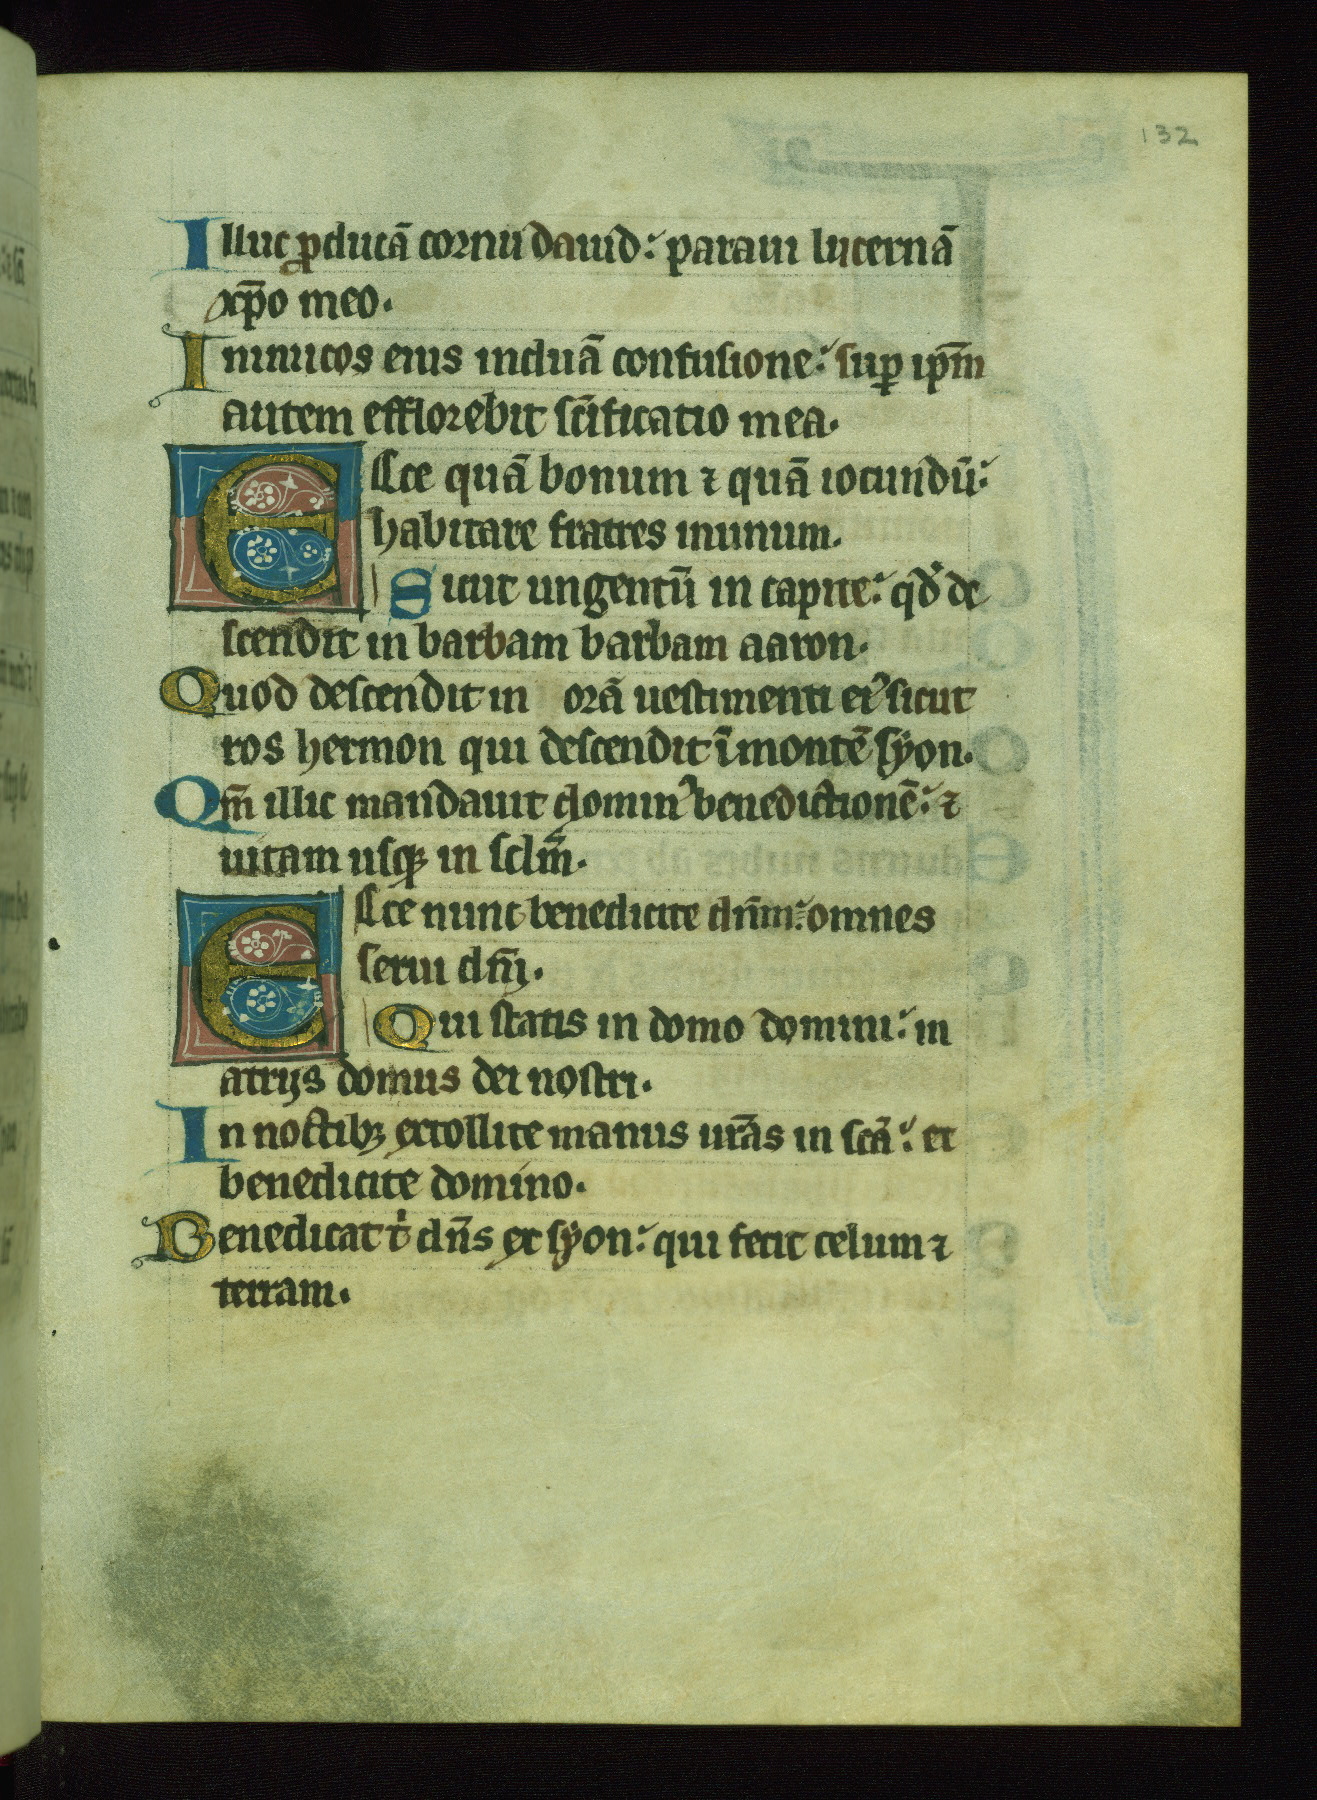 132
Illuc ꝓducā cornu dauid: paraui lucernā
xp̄o meo.
Inimicos eius induā confusione: suꝑ ip̄m
autem efflorebit sc̄ificatio mea.
Ecce quā bonum ⁊ quā iocundū:
habitare fratres inunum.
Sicut ungentū in capite: qd̓ de
scendit in barbam barbam aaron.
Quod descendit in orā uestimenti ei᾽ sicut
ros hermon qui descendit ī montē syon.
Qm̄ illic mandauit domin᾽ benedictionē: ⁊
uitam usqꝫ in sclm̄.
Ecce nunc benedicite dn̄m: omnes
serui dn̄i.
Qui statis in domo domini: in
atrijs domus dei nostri.
In noctibꝫ extollite manus ur̄as in sc̄ā: et
benedicite domino.
Benedicat t̓ dn̄s ex syon: qui fecit celum ⁊
terram.